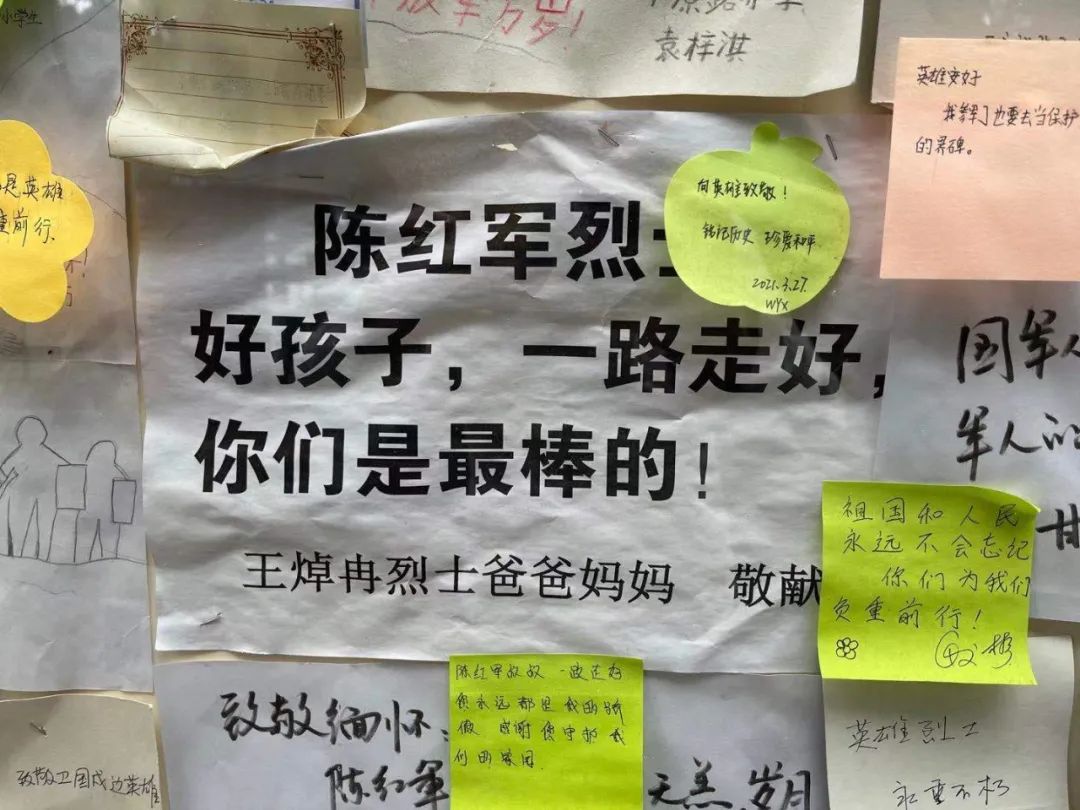 小学生
万岁!
袁梓淇
是英雄
前行
英雄安好
也要去当保护
的界碑。
向英雄致敬!
铭记历史 珍爱和平
2021.3.27.
WYX
陈红军烈
好孩子,一路走好,
你们是最棒的!
王焯冉烈士爸爸妈妈 敬献
国军人
军人的
甘
祖国和人民
永远不会忘记
你们为我们
负重前行!
致敬缅怀:
陈红军
无恙 岁月
陈红军叔叔 一路走好
您永远都是我的骄
傲 感谢您守护我
们的家园
英雄烈士
永垂不朽
致敬卫国戍边英雄